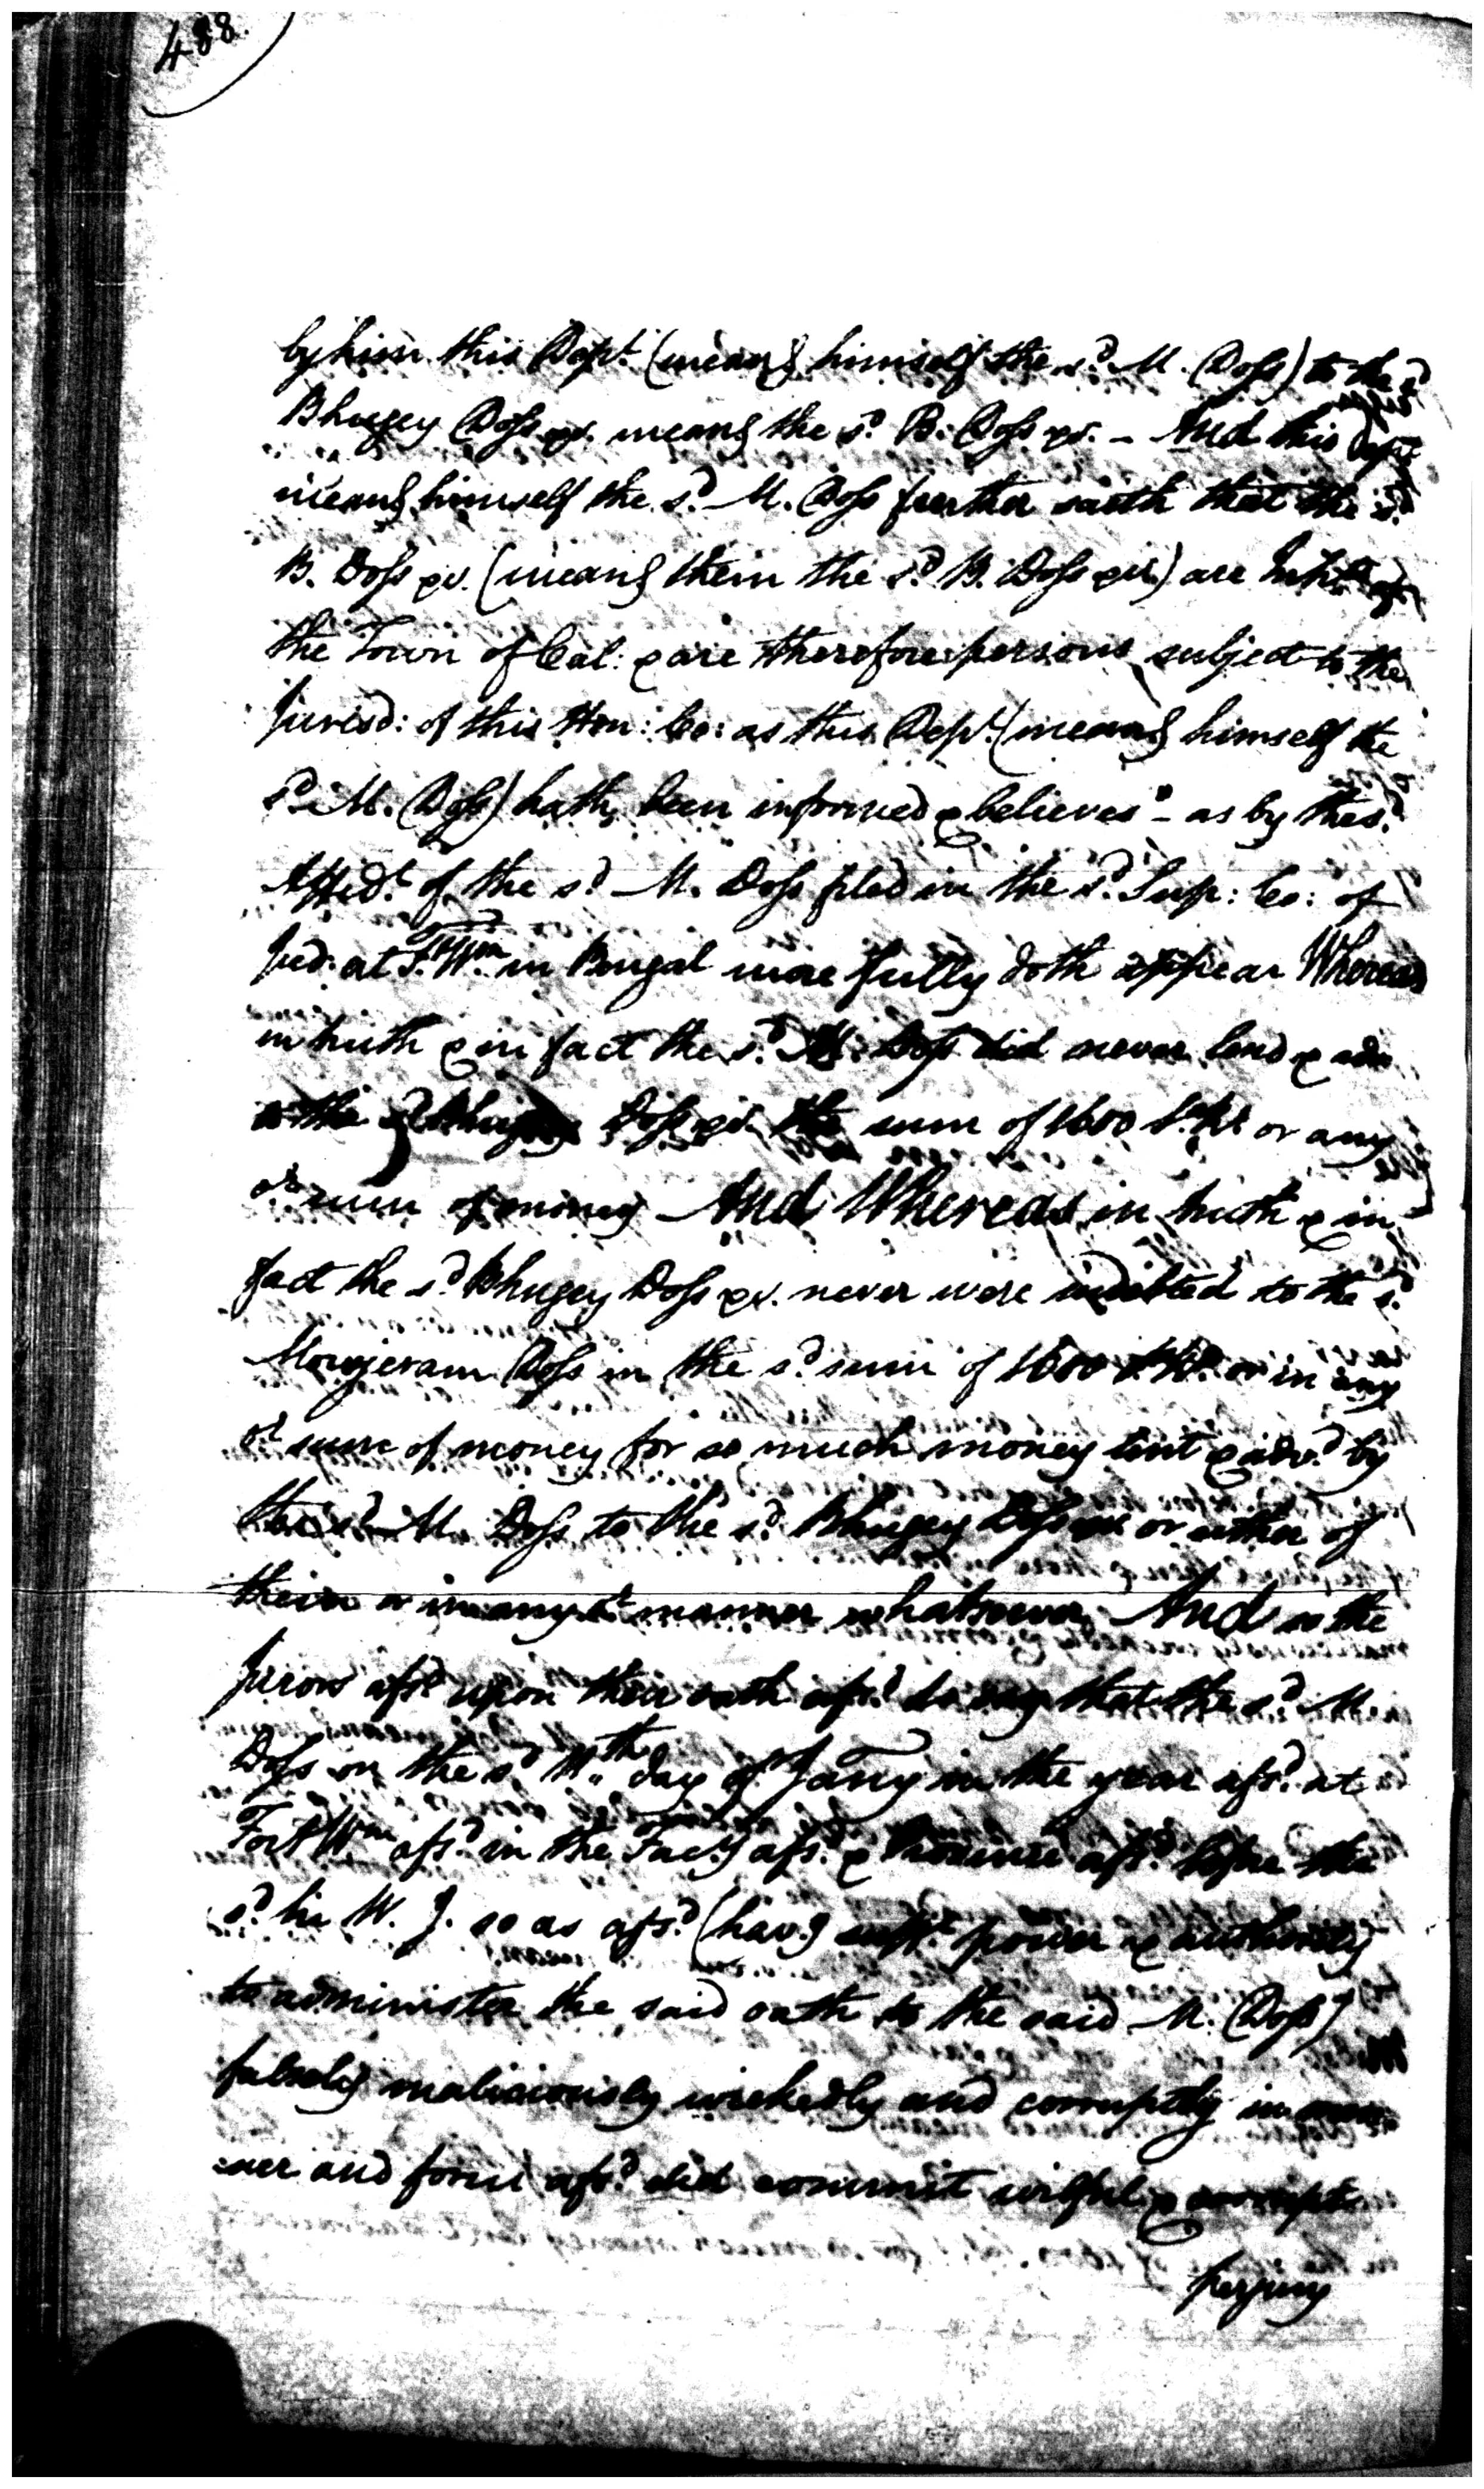 488.
by him this Dept. (meang himself the sd. M. Doss) to the sd
Bhugey Doss &c. meang the sd. B. Doss &c. - And this Dept
meang himself the sd. M. Doss further saith that the sd.
B. Doss &c. (meang them the sd. B. Doss &c.) are Inhts of
the Town of Cal: & are therefore persons subject to the
Jurisd: of this Hon: Co: as this Dept. (meang himself the
sd. M. Doss) hath been informed & believes" - as by the sd.
Affidt. of the sd. M. Doss filed in the sd. Sup: Co: of
Jud: at Ft. Wm. in Bengal more fully doth appear Whereas
in truth & in fact the sd. M. Doss did never lend & adv
to the sd Bhugey Doss &c. the sum of 1600 S.Rs or any
or. sum of money And Whereas in truth & in
fact the sd. Bhugey Doss &c. never were indebted to the sd.
Moujeram Doss in the sd. sum of 1600 S.Rs. or in any
or. sum of money for so much money lent & advd. by
the sd. M. Doss to the sd. Bhugey Doss &c or either of
them or in any or. manner whatsoever And so the
Jurors afsd upon their oath afsd. do say that the sd. M.
Doss on the sd 11th day of Jany in the year afsd. at
Fort Wm afsd. in the Facty afsd. & Province afsd. before the
sd. Sir W. J. so as afsd. (havg sufft. power & authority
to administer the said oath to the said M. Doss)
falsely maliciously wickedly and corruptly in man-
:ner and form afsd. did commit wilful & corrupt
perjury